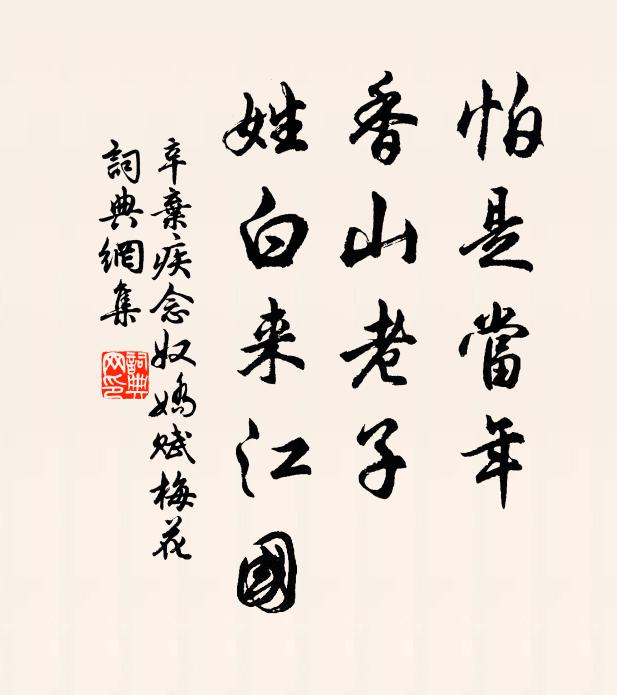 怕是當年
香山老子
姓白来江國
辛棄疾念奴嬌賦梅花
詞典網集
詞典網印